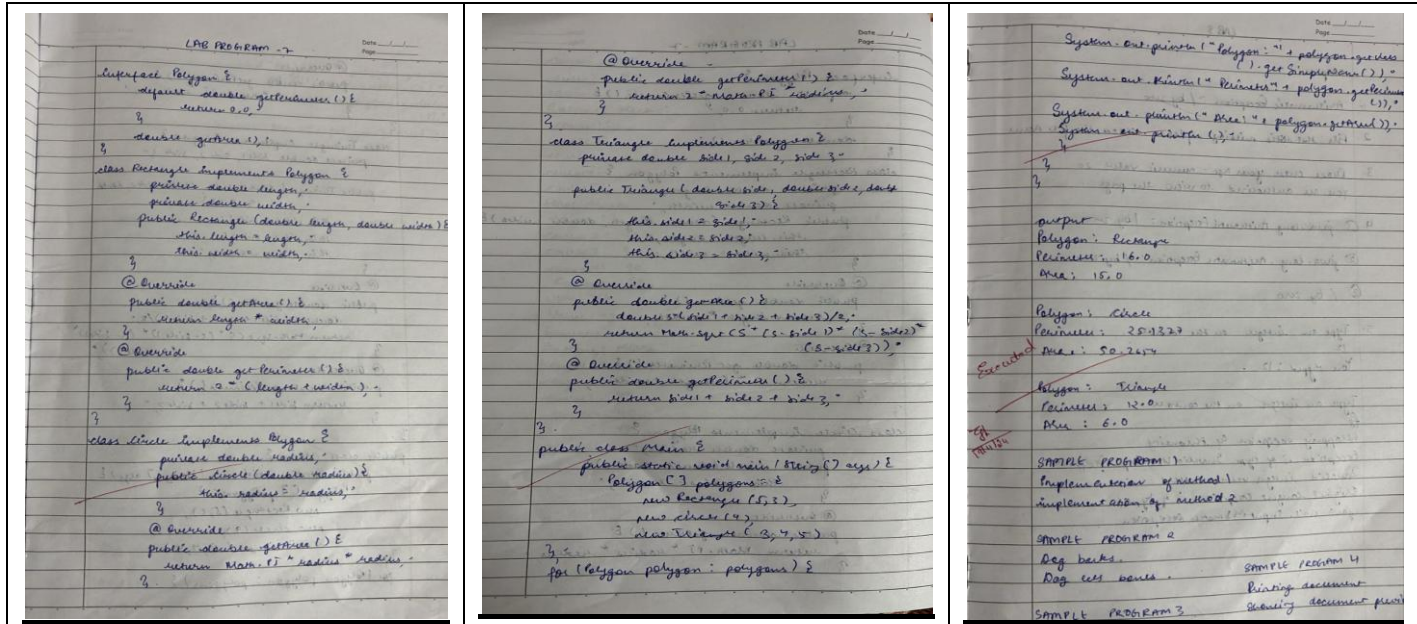 LAB PROGRAM - 7
Date
Page
interface Polygon {
default double getPerimeter () {
return 0.0;
}
double getArea ();
}
class Rectangle implements Polygon {
private double length;
private double width;
public Rectangle (double length, double width) {
this.length = length;
this.width = width;
}
@ Override
public double getArea () {
return length * width;
}
@ Override
public double getPerimeter () {
return 2 * (length + width);
}
}
class Circle implements Polygon {
private double radius;
public Circle (double radius) {
this.radius = radius;
}
@ Override
public double getArea () {
return Math.PI * radius * radius;
}
Date
Page
@ Override
public double getPerimeter () {
return 2 * Math.PI * radius;
}
}
class Triangle implements Polygon {
private double side 1, side 2, side 3;
public Triangle ( double side1, double side2, double
side 3) {
this.side1 = side1;
this.side2 = side2;
this.side3 = side3;
}
@ Override
public double getArea () {
double s = (side1 + side2 + side3)/2;
return Math.sqrt (s * (s-side1) * (s-side2) *
(s-side3));
}
@ Override
public double getPerimeter () {
return side1 + side2 + side3;
}
}
public class Main {
public static void main (String [] args) {
Polygon [] polygons = {
new Rectangle (5,3)
new Circle (4),
new Triangle ( 3, 4, 5)
};
for (Polygon polygon : polygons) {
Date
Page
System.out.println ("Polygon: " + polygon.getClass
().getSimpleName ());
System.out.println (" Perimeter" + polygon.getPerimeter
());
System.out.println (" Area: " + polygon.getArea());
System.out.println ();
}
}
}
output
Polygon: Rectangle
Perimeter: 16.0
Area: 15.0
Polygon: Circle
Perimeter: 25.1327
Area: 50.2654
Executed
Polygon: Triangle
Perimeter: 12.0
Area : 6.0
SAMPLE PROGRAM 1
Implementation of method 1
implementation of method 2
SAMPLE PROGRAM 2
Dog barks.
Dog eats bones.
SAMPLE PROGRAM 4
Printing document
SAMPLE PROGRAM 3
Showing document